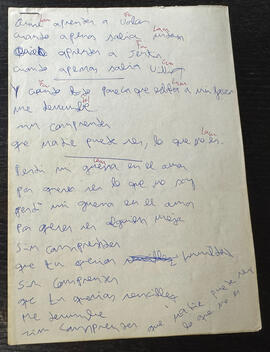 aprender a volar
cuando apenas sabía
aprender a
cuando apenas sabía
Y cuando todo parecía que estaba a un paso
me derrumbé
sin comprender
que nadie puede ser, lo que no es.
Perdí mi guerra en el amor
por querer ser lo que no soy
perdí mi guerra en el amor
por querer ser alguien mejor
Sin comprender
que tu querías humildad
Sin comprender
que tu querías sencillez
Me derrumbé
sin comprender que nadie puede ser
lo que no es